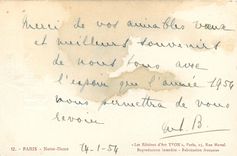 Merci de vos aimables vœux
et meilleurs souvenirs
de nous tous avec
l'espoir que l'année 1954
nous permettra de vous
revoir
Ant. B.
12. PARIS - Notre-Dame
14-1-54
"Les Éditions d'Art YVON", Paris, 15, Rue Martel
Reproduction interdite - Fabrication française